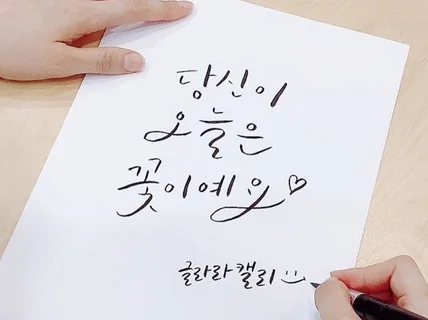 당신이
오늘은
꽃이예요♡
글라라캘리